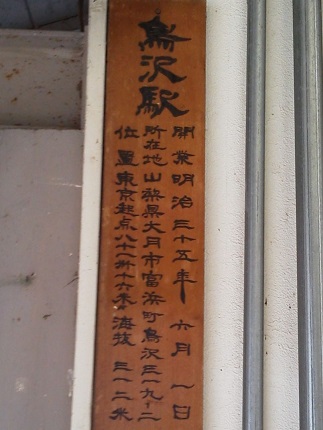 鳥沢駅
開業明治三十五年六月一日
所在地山梨県大月市富浜町鳥沢三一九ノ二
位置東京起点八十一粁十六米海抜三一二米